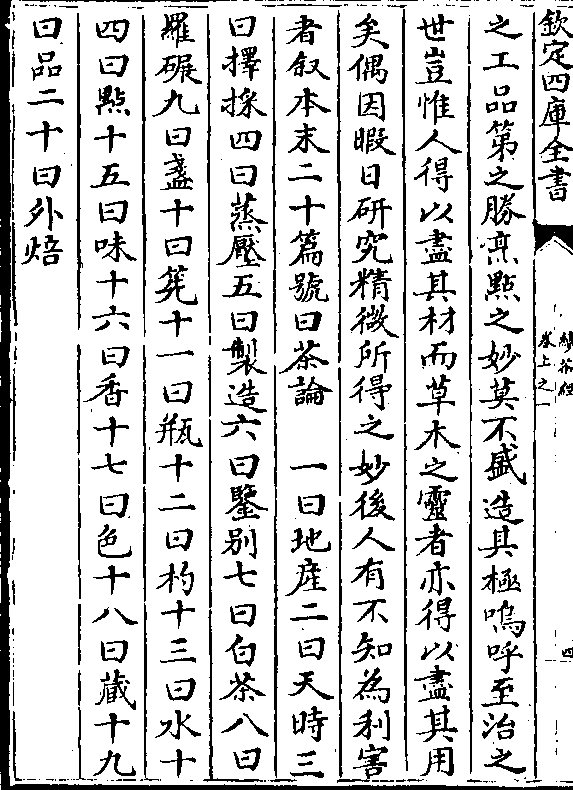 欽定四庫全書
續茶經
卷上之一
四
之工品第之勝烹點之妙莫不盛造其極嗚呼至治之
世豈惟人得以盡其材而草木之靈者亦得以盡其用
矣偶因暇日研究精微所得之妙後人有不知為利害
者叙本末二十篇號曰茶論　一曰地産二曰天時三
曰擇採四曰蒸壓五曰製造六曰鑒别七曰白茶八曰
羅碾九曰盞十曰筅十一曰瓶十二曰杓十三曰水十
四曰點十五曰味十六曰香十七曰色十八曰藏十九
曰品二十曰外焙